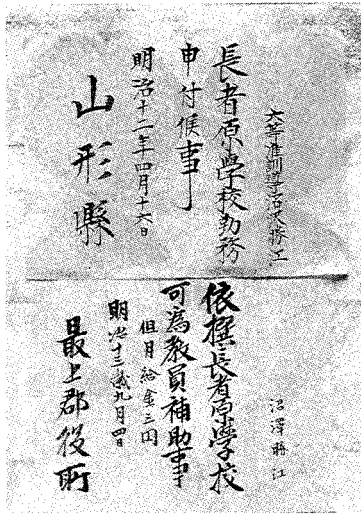 六等准訓導沼沢勝江
長者原学校勤務
申付候事
明治十二年四月十六日
山形縣
沼澤勝江
依撰長者原学校
可為教員補助事
但月給金三円
明治十三歳九月四日
最上郡役所